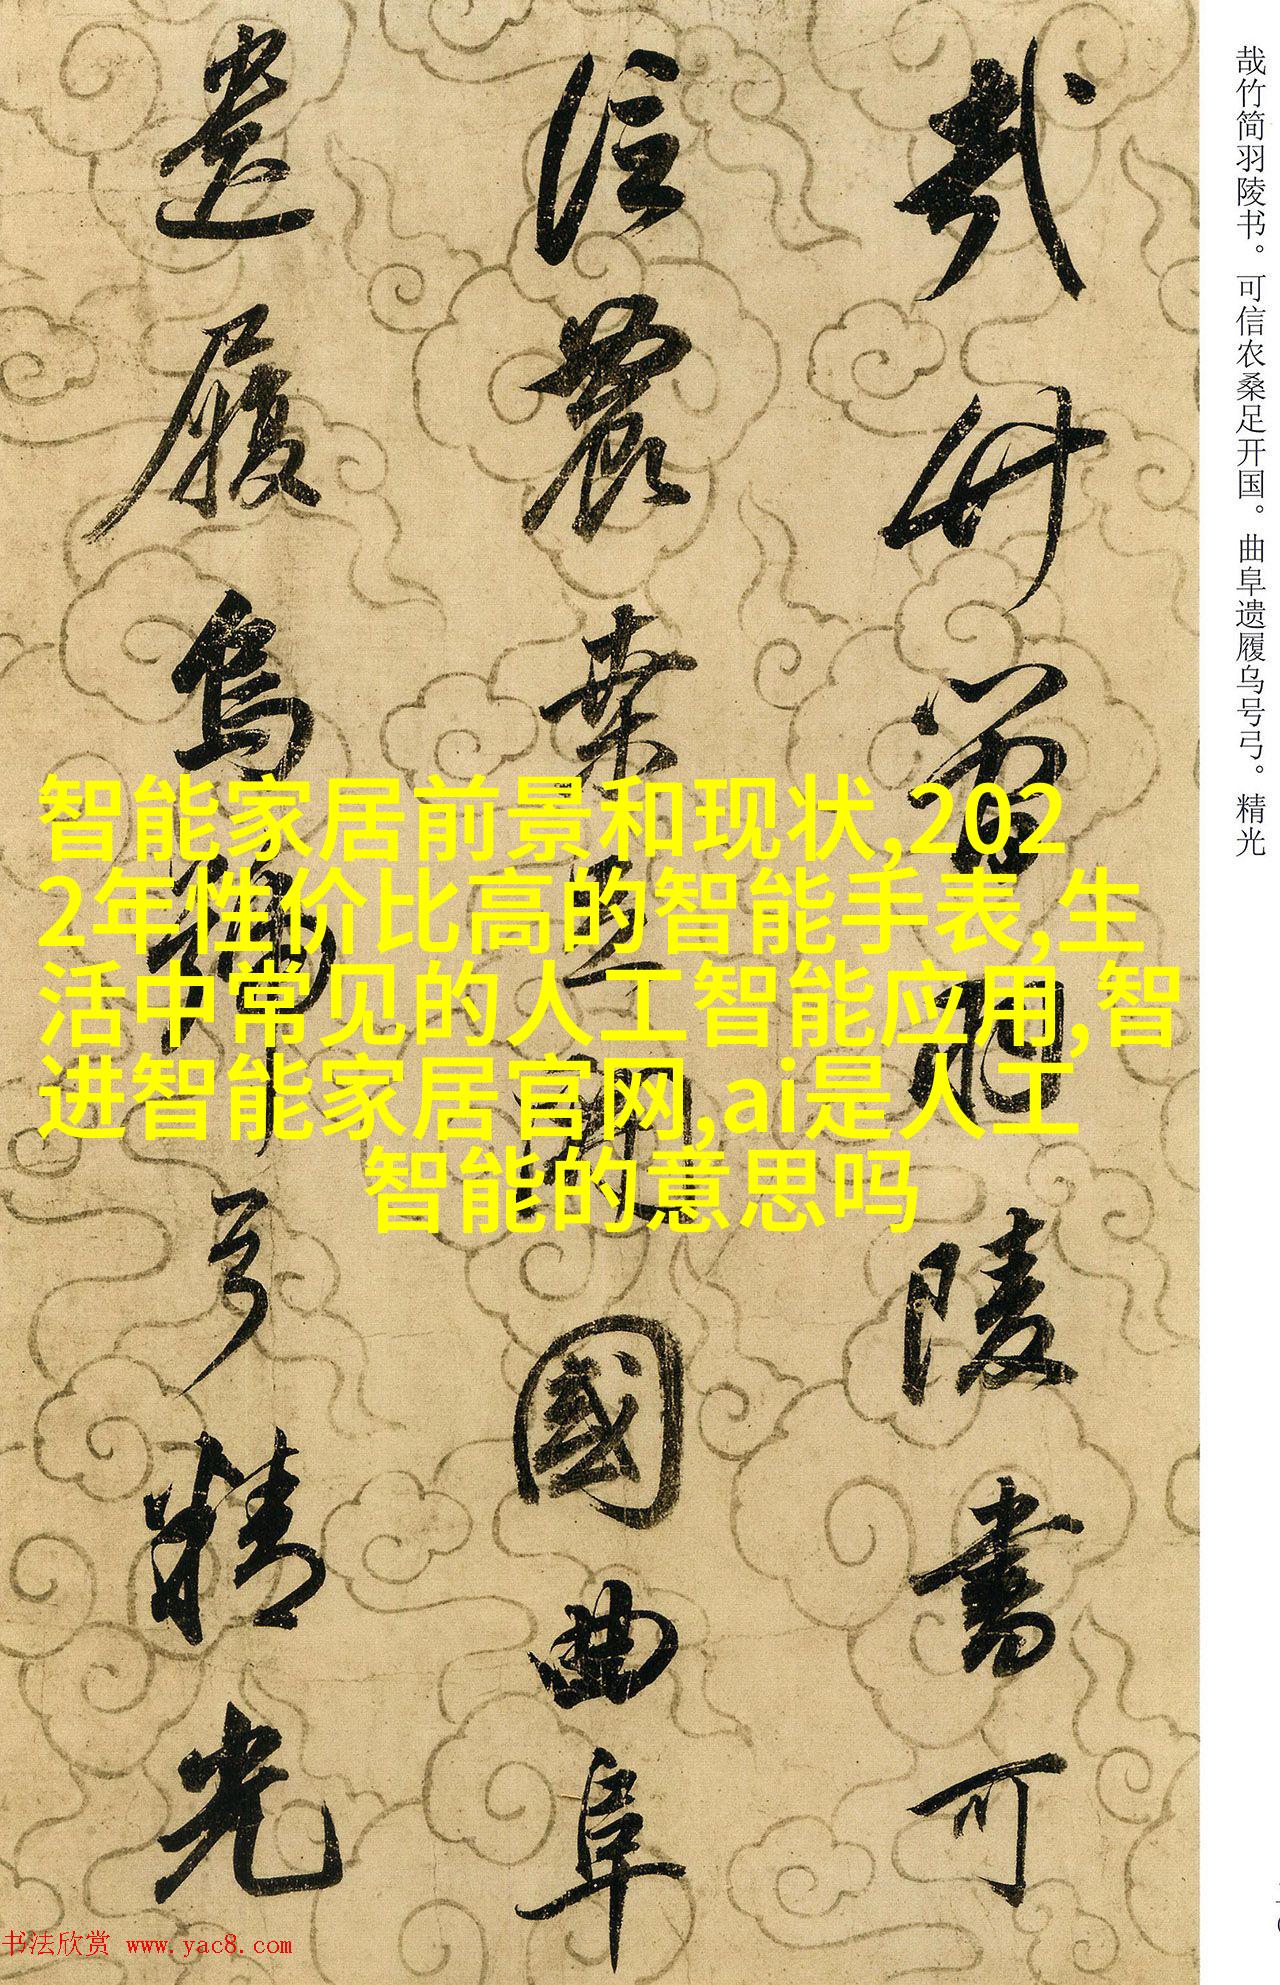 哉竹简羽陵书。可信农桑足开国。曲阜遗履乌号弓。精光
哉竹簡羽陵書可
信農桑足開國曲阜
遺履烏號弓精光
智能家居前景和现状,202
2年性价比高的智能手表,生
活中常见的人工智能应用,智
进智能家居官网,ai是人工
智能的意思吗
书法欣赏 www.yac8.com